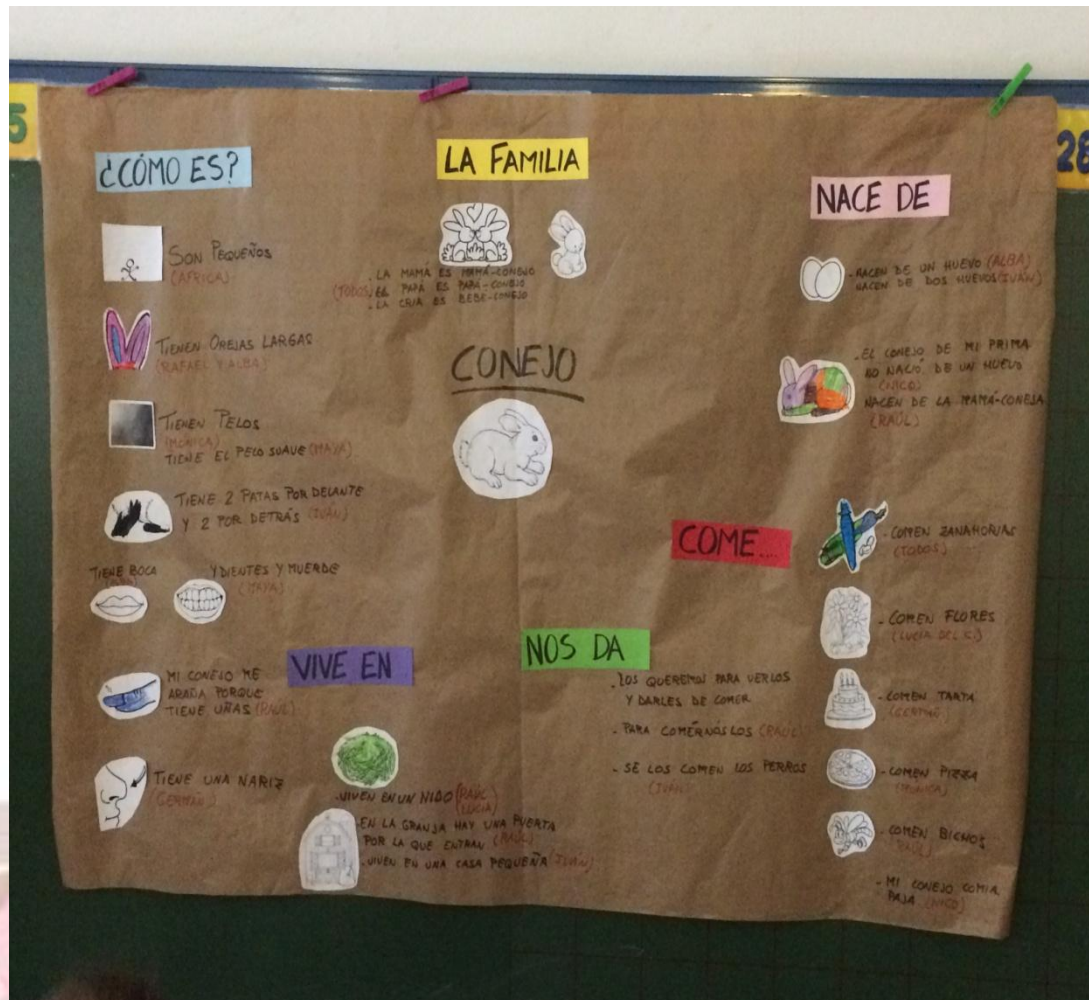 5
28
¿CÓMO ES?
SON PEQUEÑOS
(AFRICA)
TIENEN OREJAS LARGAS
(RAFAEL Y ALBA)
TIENEN PELOS
(MÓNICA)
TIENE EL PELO SUAVE (MAYA)
TIENE 2 PATAS POR DELANTE
Y 2 POR DETRÁS (IVÁN)
TIENE BOCA
Y DIENTES Y MUERDE
(MAYA)
MI CONEJO ME
ARAÑA PORQUE
TIENE UÑAS (RAUL)
TIENE UNA NARIZ
(GERMÁN)
LA FAMILIA
- LA MAMÁ ES MAMÁ-CONEJO
(TODOS) EL PAPÁ ES PAPÁ-CONEJO
- LA CRIA ES BEBE-CONEJO
CONEJO
VIVE EN
- VIVEN EN UN NIDO (RAÚL
LUCÍA)
EN LA GRANJA HAY UNA PUERTA
POR LA QUE ENTRAN (RAÚL)
- VIVEN EN UNA CASA PEQUEÑA (IVÁN)
NOS DA
- LOS QUEREMOS PARA VERLOS
Y DARLES DE COMER
- PARA COMÉRNOSLOS (RAÚL)
- SE LOS COMEN LOS PERROS
(IVÁN)
NACE DE
- NACEN DE UN HUEVO (ALBA)
NACEN DE DOS HUEVOS (IVÁN)
- EL CONEJO DE MI PRIMA
NO NACIÓ DE UN HUEVO
(NICO)
NACEN DE LA MAMÁ-CONEJA
(RAÚL)
COME....
- COMEN ZANAHORIAS
(TODOS)
- COMEN FLORES
(LUCIA DEL
- COMEN TARTA
- COMEN PIZZA
(MONICA)
- COMEN BICHOS
(RAÚL)
- MI CONEJO COMIA
PAJA (NICO)